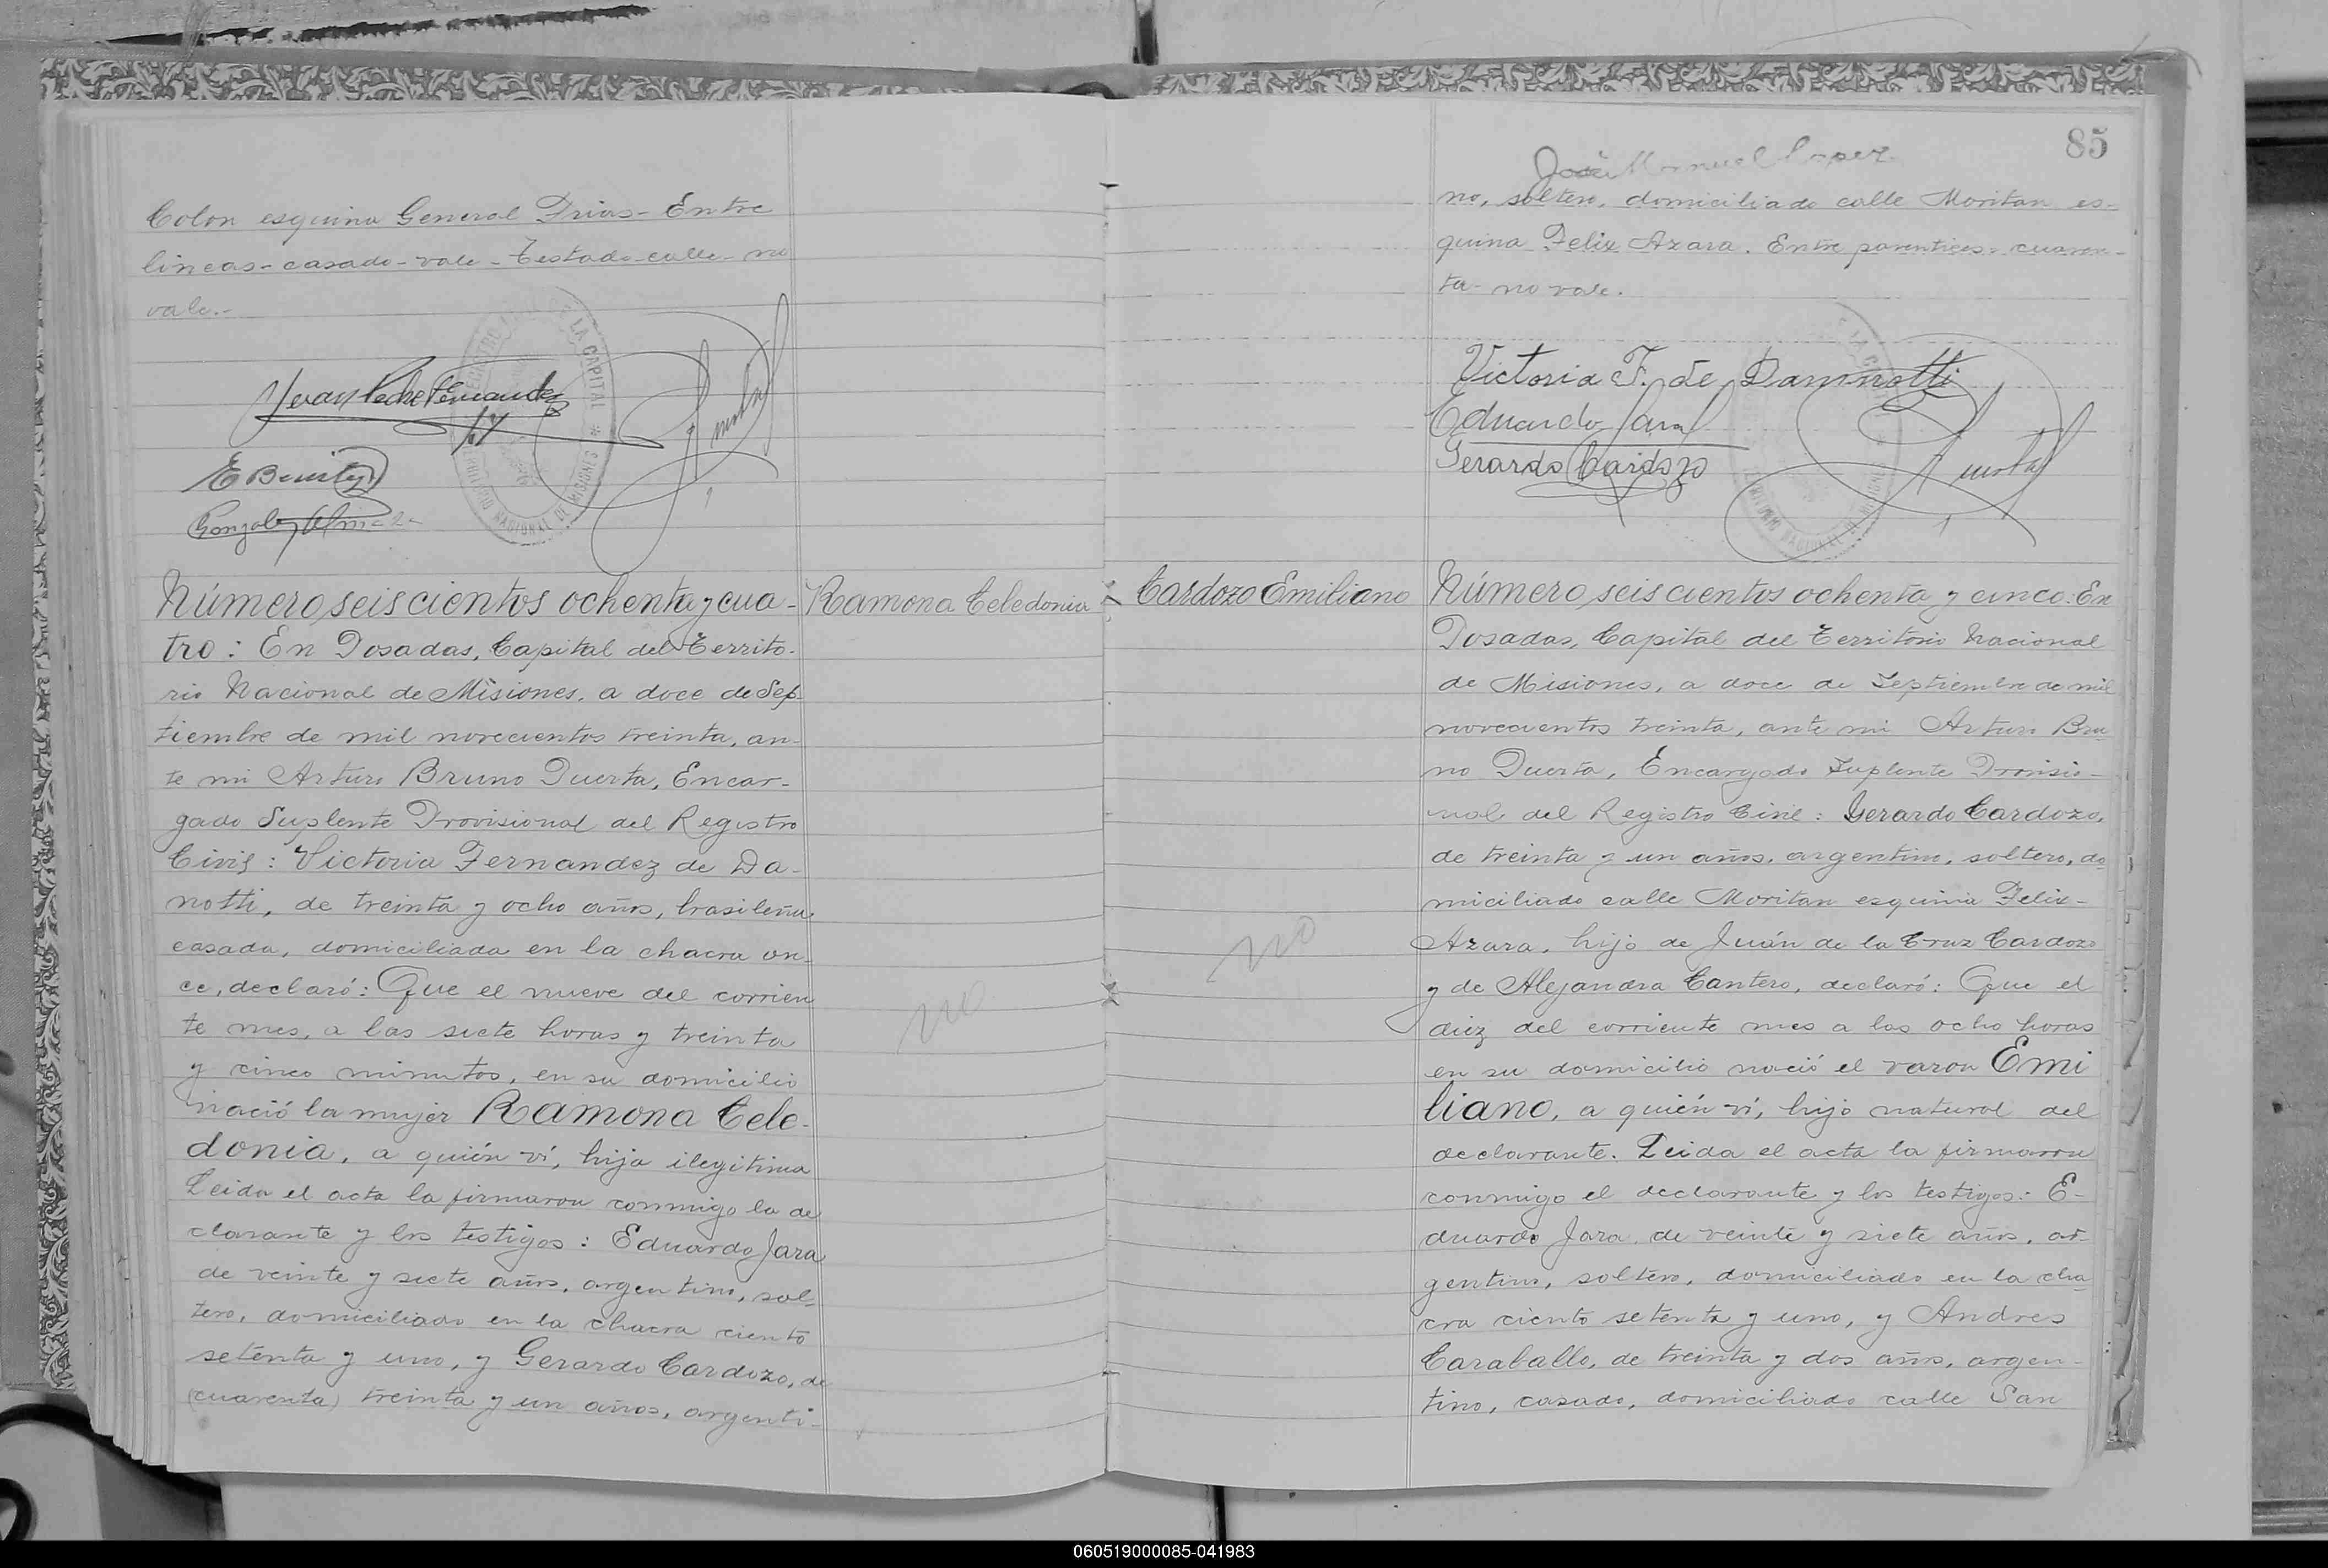 Colon esquina General Frias - Entre
lineas - casado - vale - Testado - calle - no
vale.-
REGISTRO CIVIL DE LA CAPITAL * TERRITORIO NACIONAL DE MISIONES
E Benitez
Número, seis cientos ochenta y cua-
tro: En Posadas, Capital del Territo-
rio Nacional de Misiones, a doce de Sep-
tiembre de mil novecientos treinta, an-
te mi Arturo Bruno Puerta, Encar-
gado Suplente Provisional del Registro
Civil: Victoria Fernandez de Da-
notti, de treinta y ocho años, brasileña,
casada, domiciliada en la chacra on-
ce, declaró: Que el nueve del corrien
te mes, a las siete horas y treinta
y cinco minutos, en su domicilio
nació la mujer Ramona Cele-
donia, a quién ví, hija ilegitima
Leida el acta la firmaron conmigo la de
clarante y los testigos: Eduardo Jara
de veinte y siete años, argentino, sol-
tero, domiciliado en la chacra ciento
setenta y uno, y Gerardo Cardozo, de
(cuarenta) treinta y un años, argenti-
Ramona Celedonia
no
85
José Manuel Lopez
no, soltero, domiciliado calle Moritan es-
quina Felix Azara. Entre parentices - cuaren-
ta - no vale.
Victoria F. de Dannotti
Eduardo Jara
Gerardo Cardozo
Cardozo Emiliano
no
Número, seis cientos ochenta y cinco: En
Posadas, Capital del Territorio Nacional
de Misiones, a doce de Septiembre de mil
novecientos treinta, ante mi Arturo Bru
no Puerta, Encargado Suplente Provisio-
nal del Registro Civil: Gerardo Cardozo,
de treinta y un años, argentino, soltero, do
miciliado calle Moritan esquina Felix-
Azara, hijo de Juán de la Cruz Cardozo
y de Alejandra Cantero, declaró: Que el
diez del corriente mes a las ocho horas
en su domicilio nació el varon Emi
liano, a quién ví, hijo natural del
declarante. Leida el acta la firmaron
conmigo el declarante y los testigos: E-
duardo Jara, de veinte y siete años, ar-
gentino, soltero, domiciliado en la cha
cra ciento setenta y uno, y Andres
Caraballo, de treinta y dos años, argen-
tino, casado, domiciliado calle San
060519000085-041983